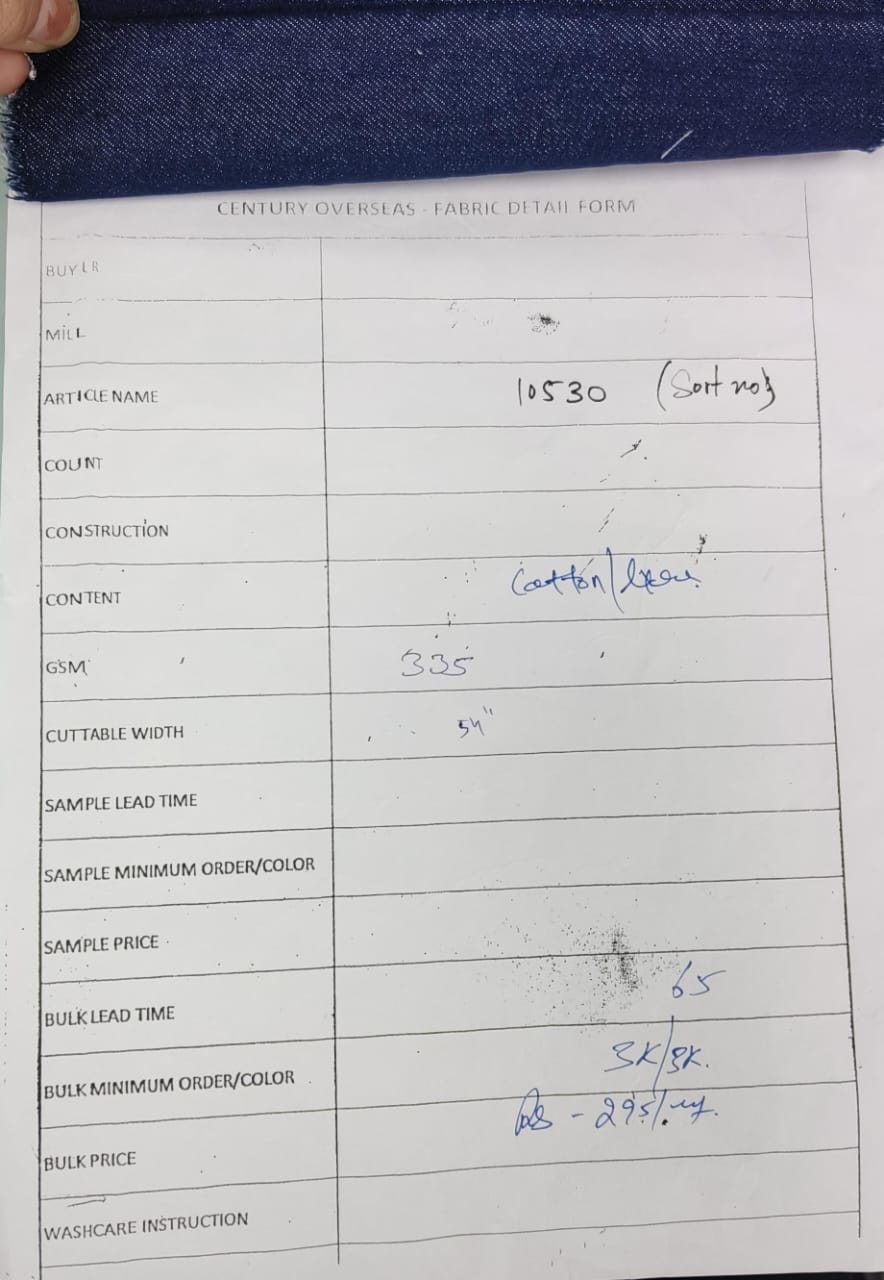 CENTURY OVERSEAS - FABRIC DETAIL FORM
BUYER
MILL
ARTICLE NAME 10530 (Sort no)
COUNT
CONSTRUCTION
CONTENT Cotton/
GSM 335
CUTTABLE WIDTH 54"
SAMPLE LEAD TIME
SAMPLE MINIMUM ORDER/COLOR
SAMPLE PRICE
BULK LEAD TIME 65
BULK MINIMUM ORDER/COLOR 3K/3K.
BULK PRICE Rs - 295/
WASHCARE INSTRUCTION